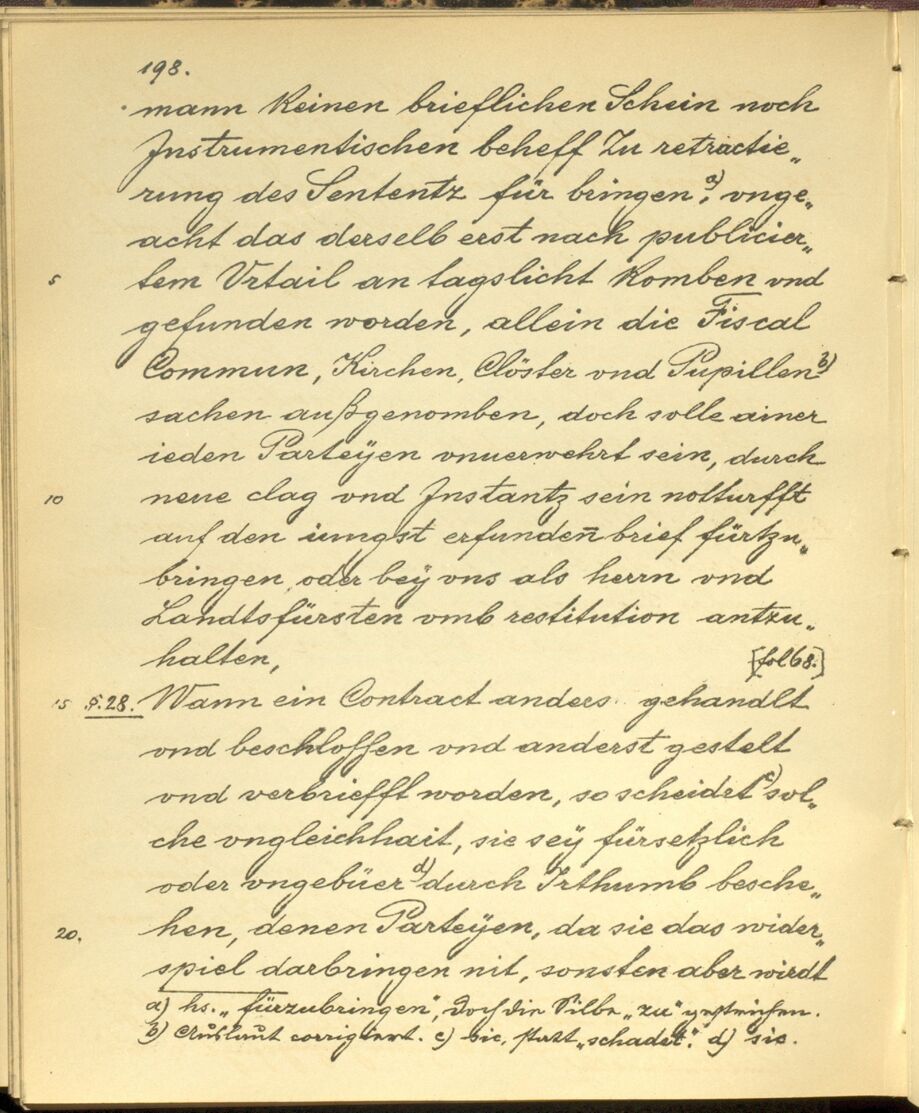 198.
mann keinen brieflichen Schein noch
Instrumentischen beheff zu retractie„
rung des Sententz für bringen,a) vnge„
acht das derselb erst nach publicier„
5 tem Vrtail an tagslicht komben vnd
gefunden worden, allein die Fiscal
Commun, Kirchen, Clöster vnd Pupillenb)
sachen außgenomben, doch solle ainer
ieden Parteÿen vnuerwehrt sein, durch
10 neue clag vnd Instantz sein notturfft
auf den iungst erfundeñ brief fürtzu„
bringen oder beÿ vns als herrn vnd
Landtsfürsten vmb restitution antzu„
halten,
[fol 68.]
15 §.28. Wann ein Contract anders gehandlt
vnd beschlossen vnd anderst gestelt
vnd verbriefft worden, so scheidetc) sol„
che vngleichhait, sie seÿ fürsetzlich
oder vngebüerd) durch Irthumb besche„
20. hen, denen Parteÿen, da sie das wider„
spiel darbringen nit, sonsten aber wirdt
a) hs. „fürzubringen“, doch die Silbe „zu“ gestrichen.
b) Auslaut corrigiert. c) sic, statt „schadet“. d) sic.